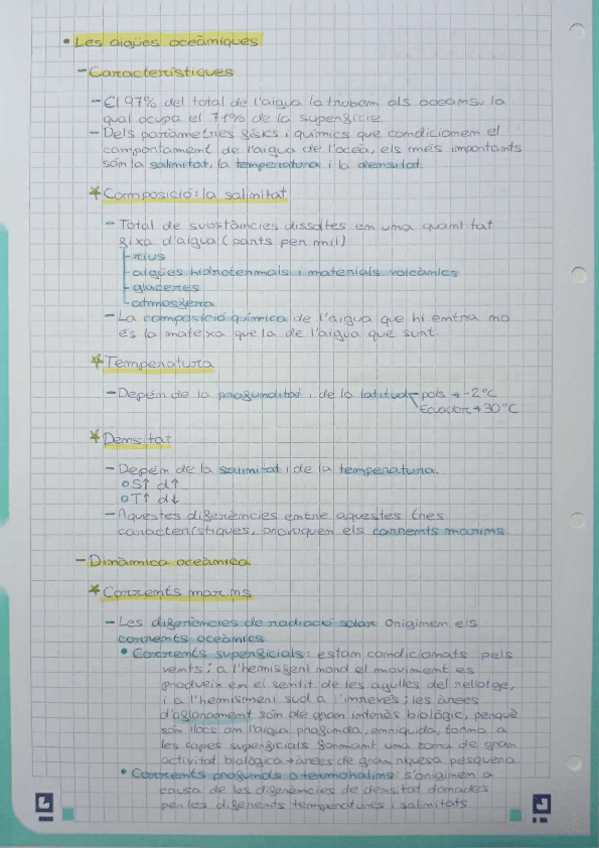 • Les aigües oceàniques
- Característiques
- El 97% del total de l'aigua la trobem als oceans, la
qual ocupa el 71% de la superfície.
- Dels paràmetres físics i químics que condicionem el
comportament de l'aigua de l'oceà, els més importants
són la salinitat, la temperatura i la densitat.
* Composició: la salinitat
- Total de substàncies dissoltes en una quantitat
fixa d'aigua (parts per mil)
- rius
- aigües hidrotermals i materials volcànics
- glaceres
- atmosfera
- La composició química de l'aigua que hi entra no
és la mateixa que la de l'aigua que surt.
* Temperatura
- Depèn de la profunditat i de la latitud - pols → -2°C
Ecuador → 30°C
* Densitat
- Depèn de la salinitat i de la temperatura.
o S↑ d↑
o T↑ d↓
- Aquestes diferències entre aquestes tres
característiques, provoquen els corrents marins.
- Dinàmica oceànica
* Corrents marins
- Les diferències de radiació solar originem els
corrents oceànics.
• Corrents superficials: estan condicionats pels
vents; a l'hemisferi nord el moviment es
produeix en el sentit de les agulles del rellotge,
i a l'hemisferi sud a l'inrevés; les àrees
d'aflorament són de gran interès biològic, perquè
són llocs on l'aigua profunda, enriquida, torna a
les capes superficials formant una zona de gran
activitat biològica → àrees de gran riquesa pesquera
• Corrents profunds o termohalins: s'originem a
causa de les diferències de densitat donades
per les diferents temperatures i salinitats